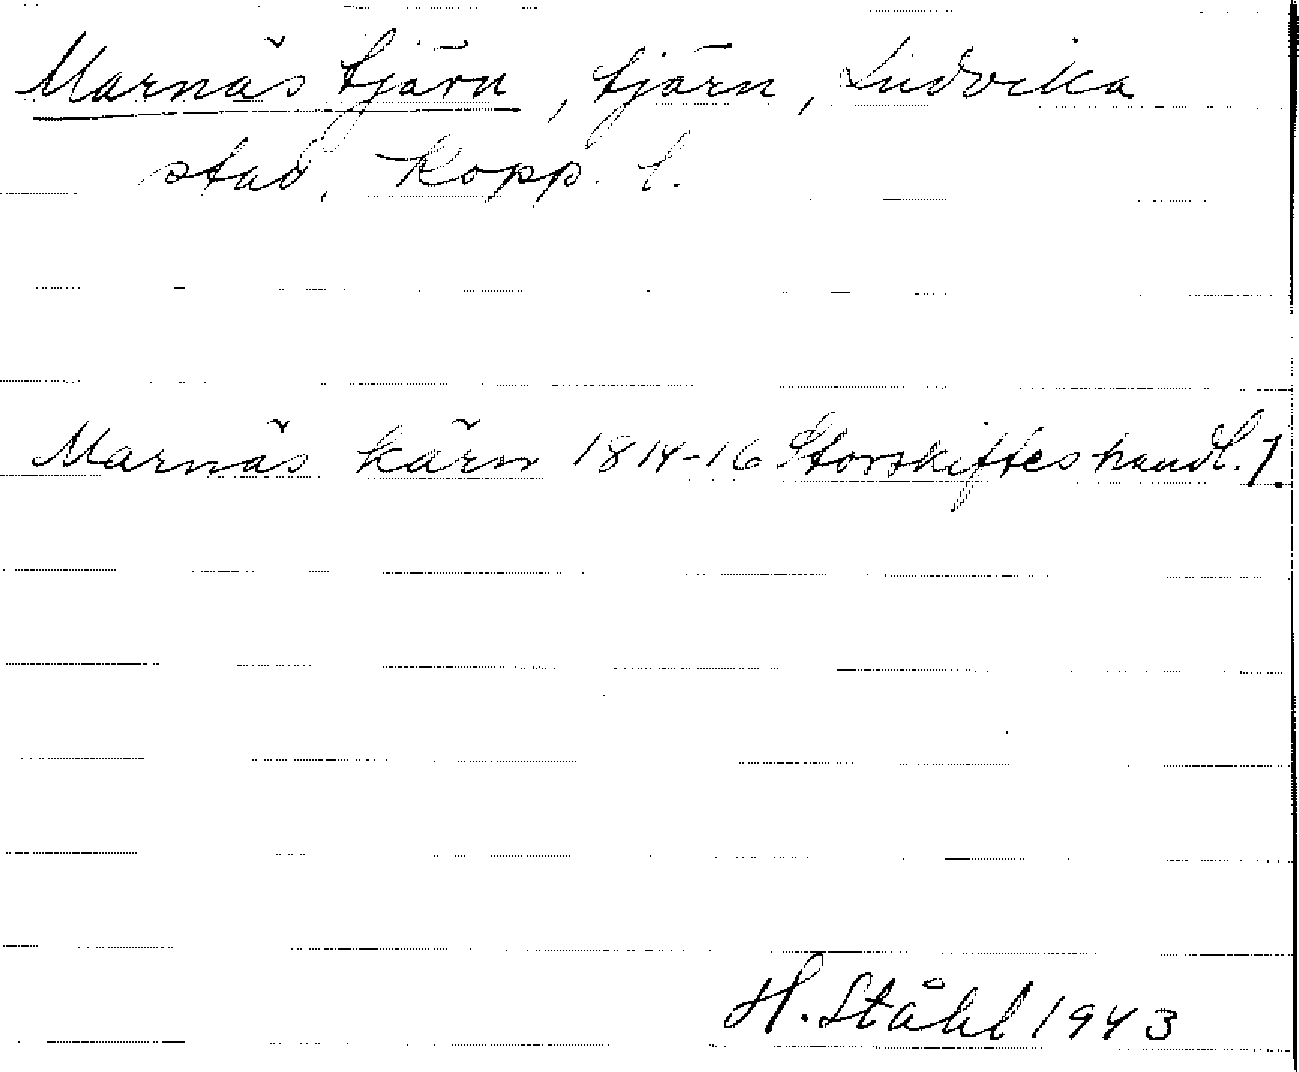 Marnäs tjärn, tjärn, Ludvika
stad, Kopp. l.
Marnäs kärn 1814-16 Storskifteshandl. 7.
H. Ståhl 1943